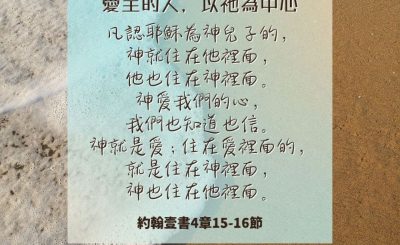 愛主的人，以祂為中心
凡認耶穌為神兒子的，
神就住在他裡面，
他也住在神裡面。
神愛我們的心，
我們也知道也信。
神就是愛；住在愛裡面的，
就是住在神裡面，
神也住在他裡面。
約翰壹書4章15-16節